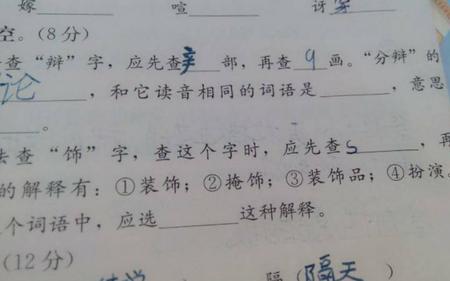 嫁 喧 讶
空。(8分)
查“辩”字，应先查辛部，再查9画。“分辩”的
论，和它读音相同的词语是，意思
。
法查“饰”字，查这个字时，应先查S，再
的解释有：①装饰；②掩饰；③装饰品；④扮演。
个词语中，应选这种解释。
(12分)
隔(隔天)